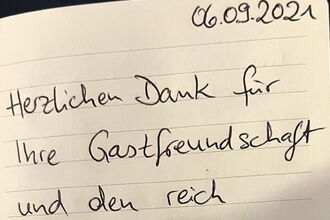 06.09.2021
Herzlichen Dank für
Ihre Gastfreundschaft
und den reich